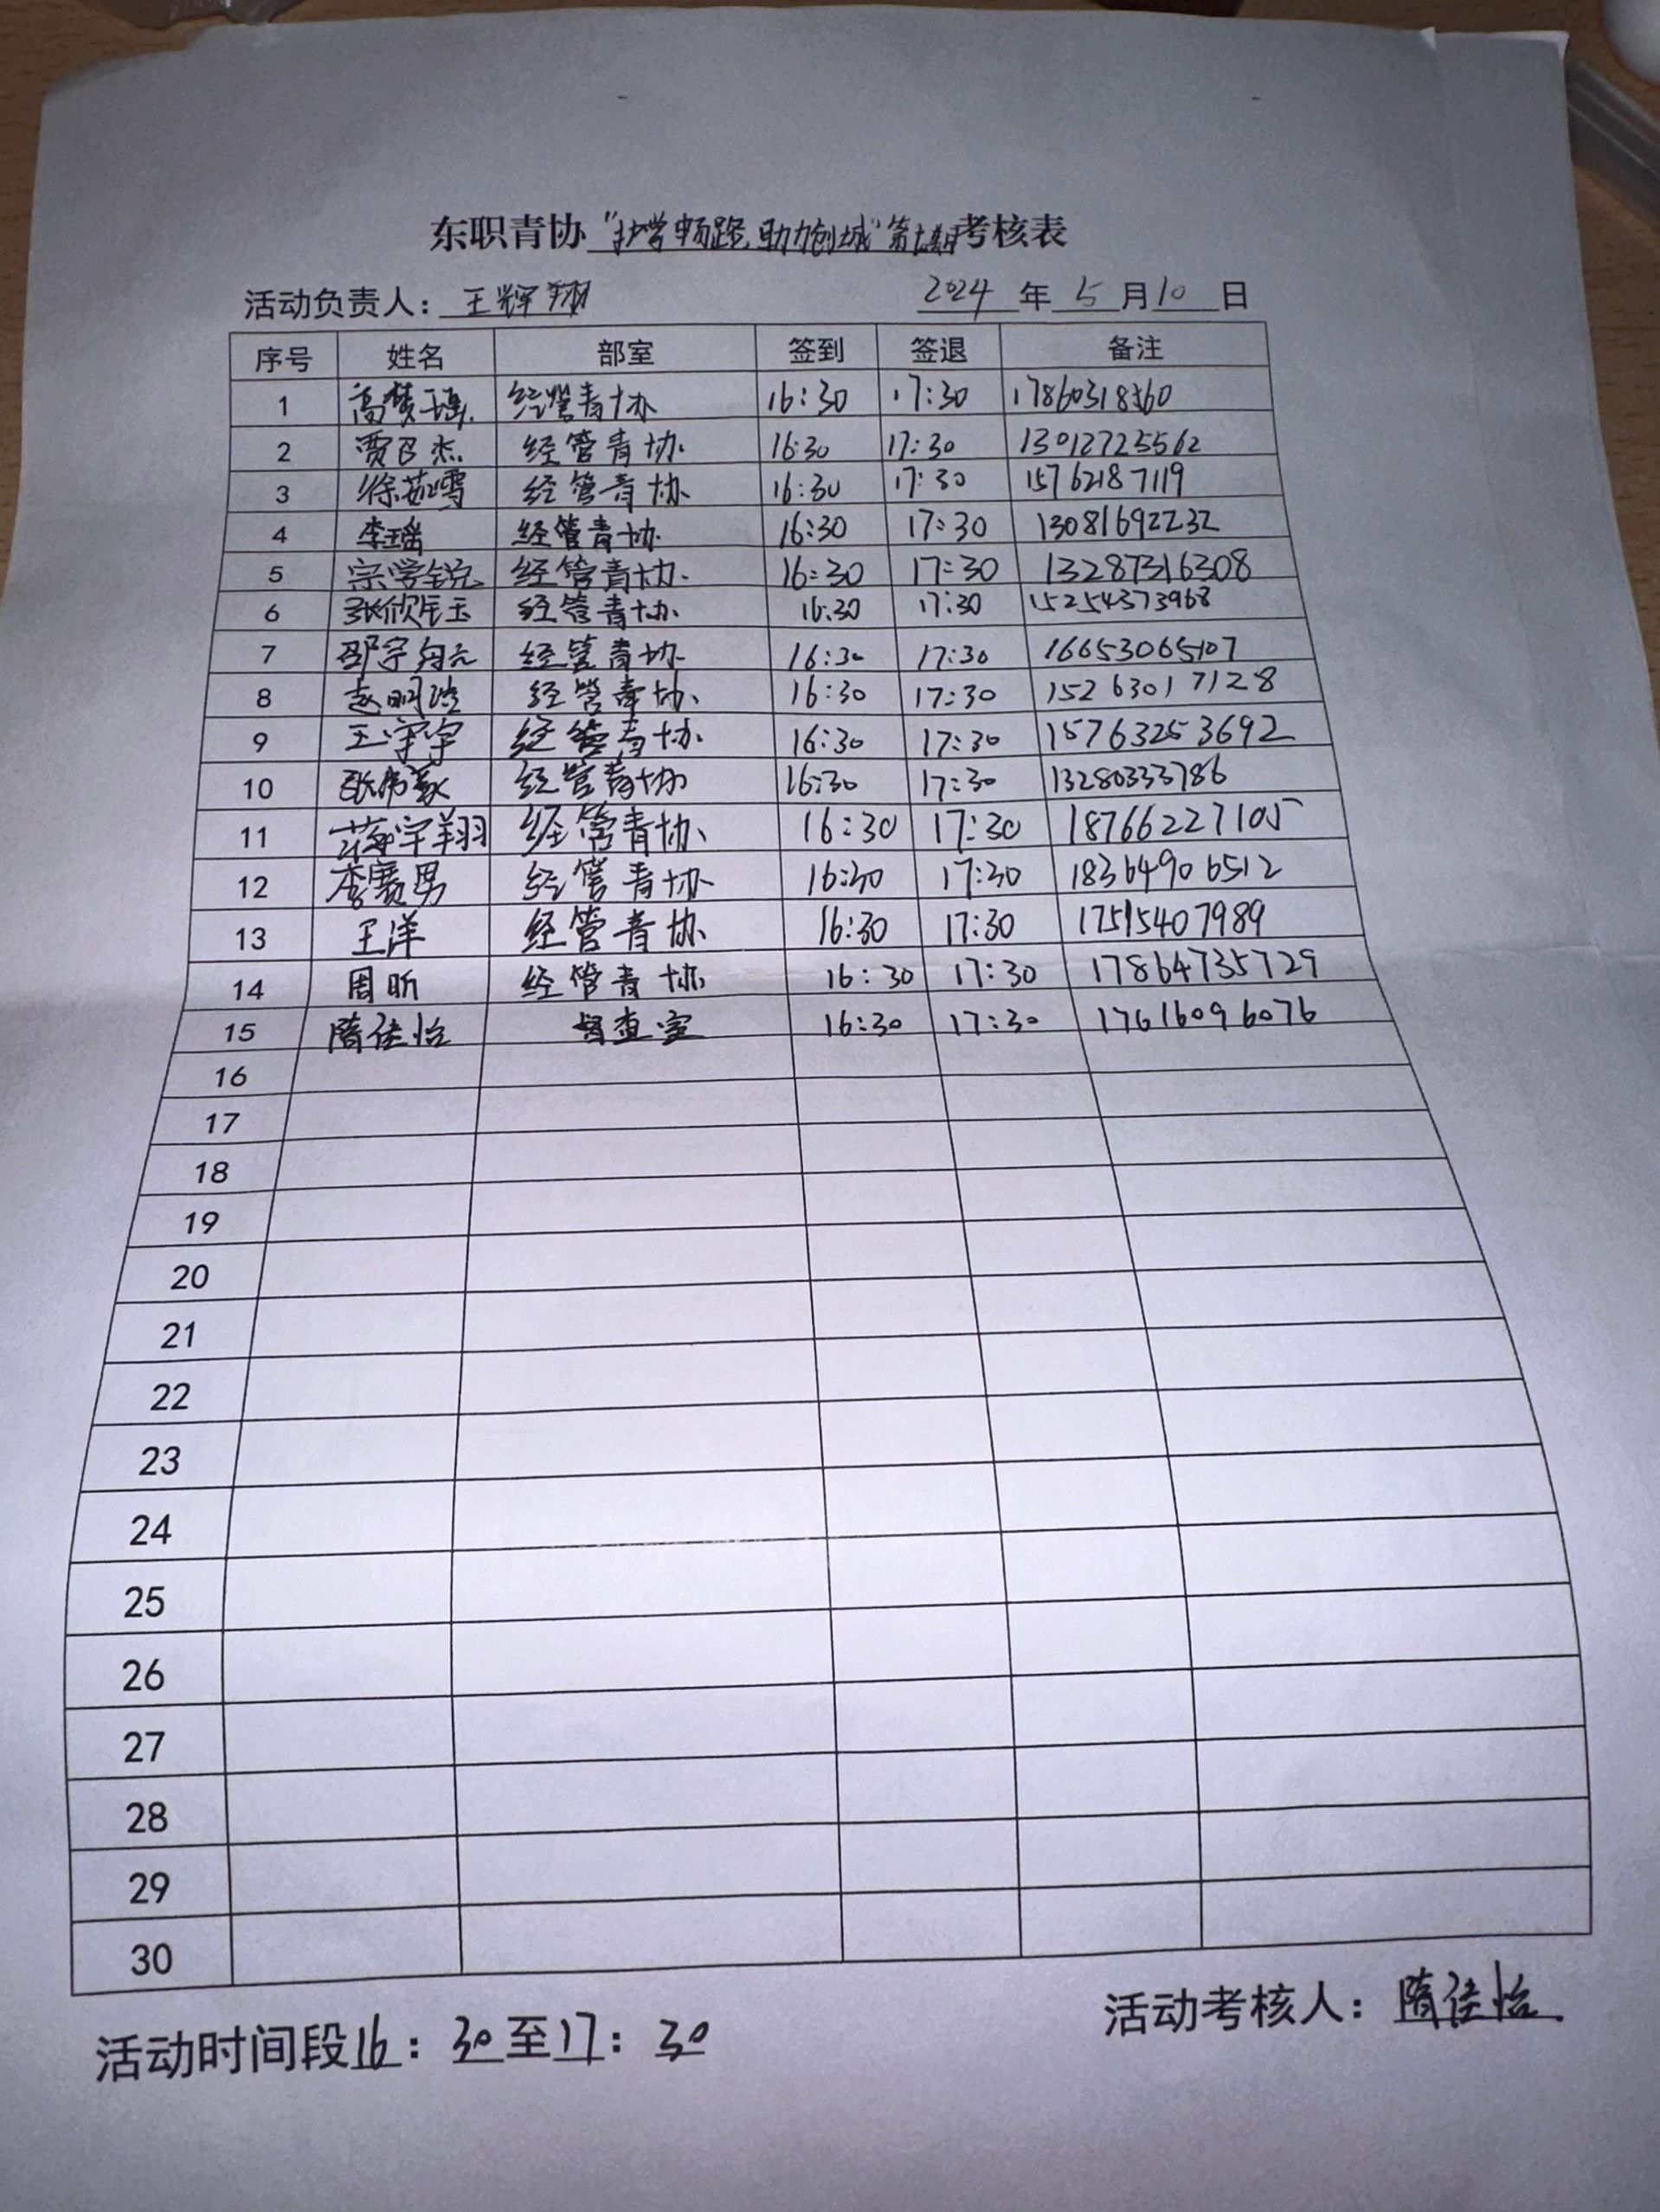 东职青协"护学畅路,助力创城"第七期考核表
活动负责人:王辉翔 2024年5月10日
序号 姓名 部室 签到 签退 备注
1 高梦瑶 经管青协 16:30 17:30 17860318560
2 贾吕杰 经管青协 16:30 17:30 13012725562
3 徐茹雪 经管青协 16:30 17:30 15762187119
4 李瑶 经管青协 16:30 17:30 13081692232
5 宗学锐 经管青协 16:30 17:30 13287316308
6 张欣钰 经管青协 16:30 17:30 15254373968
7 邵宇 经管青协 16:30 17:30 16653065107
8 赵明浩 经管青协 16:30 17:30 15263017128
9 王守宇 经管青协 16:30 17:30 15763253692
10 张 经管青协 16:30 17:30 13280333786
11 蒋宇翔 经管青协 16:30 17:30 18766227105
12 李赛男 经管青协 16:30 17:30 18364906512
13 王洋 经管青协 16:30 17:30 17515407989
14 周昕 经管青协 16:30 17:30 17864735729
15 隋佳怡 督查室 16:30 17:30 17616096076
16
17
18
19
20
21
22
23
24
25
26
27
28
29
30
活动考核人:隋佳怡
活动时间段16:30至17:30